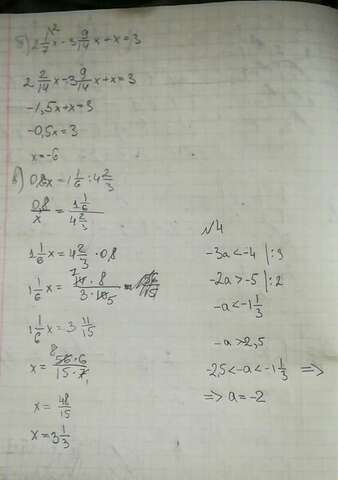 б) 2 1/7 x - 3 9/14 x + x = 3
2 2/14 x - 3 9/14 x + x = 3
-1,5x + x = 3
-0,5x = 3
x = -6
в) 0,8x - 1 1/6 : 4 2/3
0,8/x = 1 1/6 / 4 2/3
1 1/6 x = 4 2/3 · 0,8
1 1/6 x = 14 · 8 / 3 · 10 5 = 56/15
1 1/6 x = 3 11/15
x = 56 · 6 / 15 · 7
x = 48/15
x = 3 1/3
№4
-3a < -4 | : 3
-2a > -5 | : 2
-a < -1 1/3
-a > 2,5
-2,5 < -a < -1 1/3 =>
=> a = -2